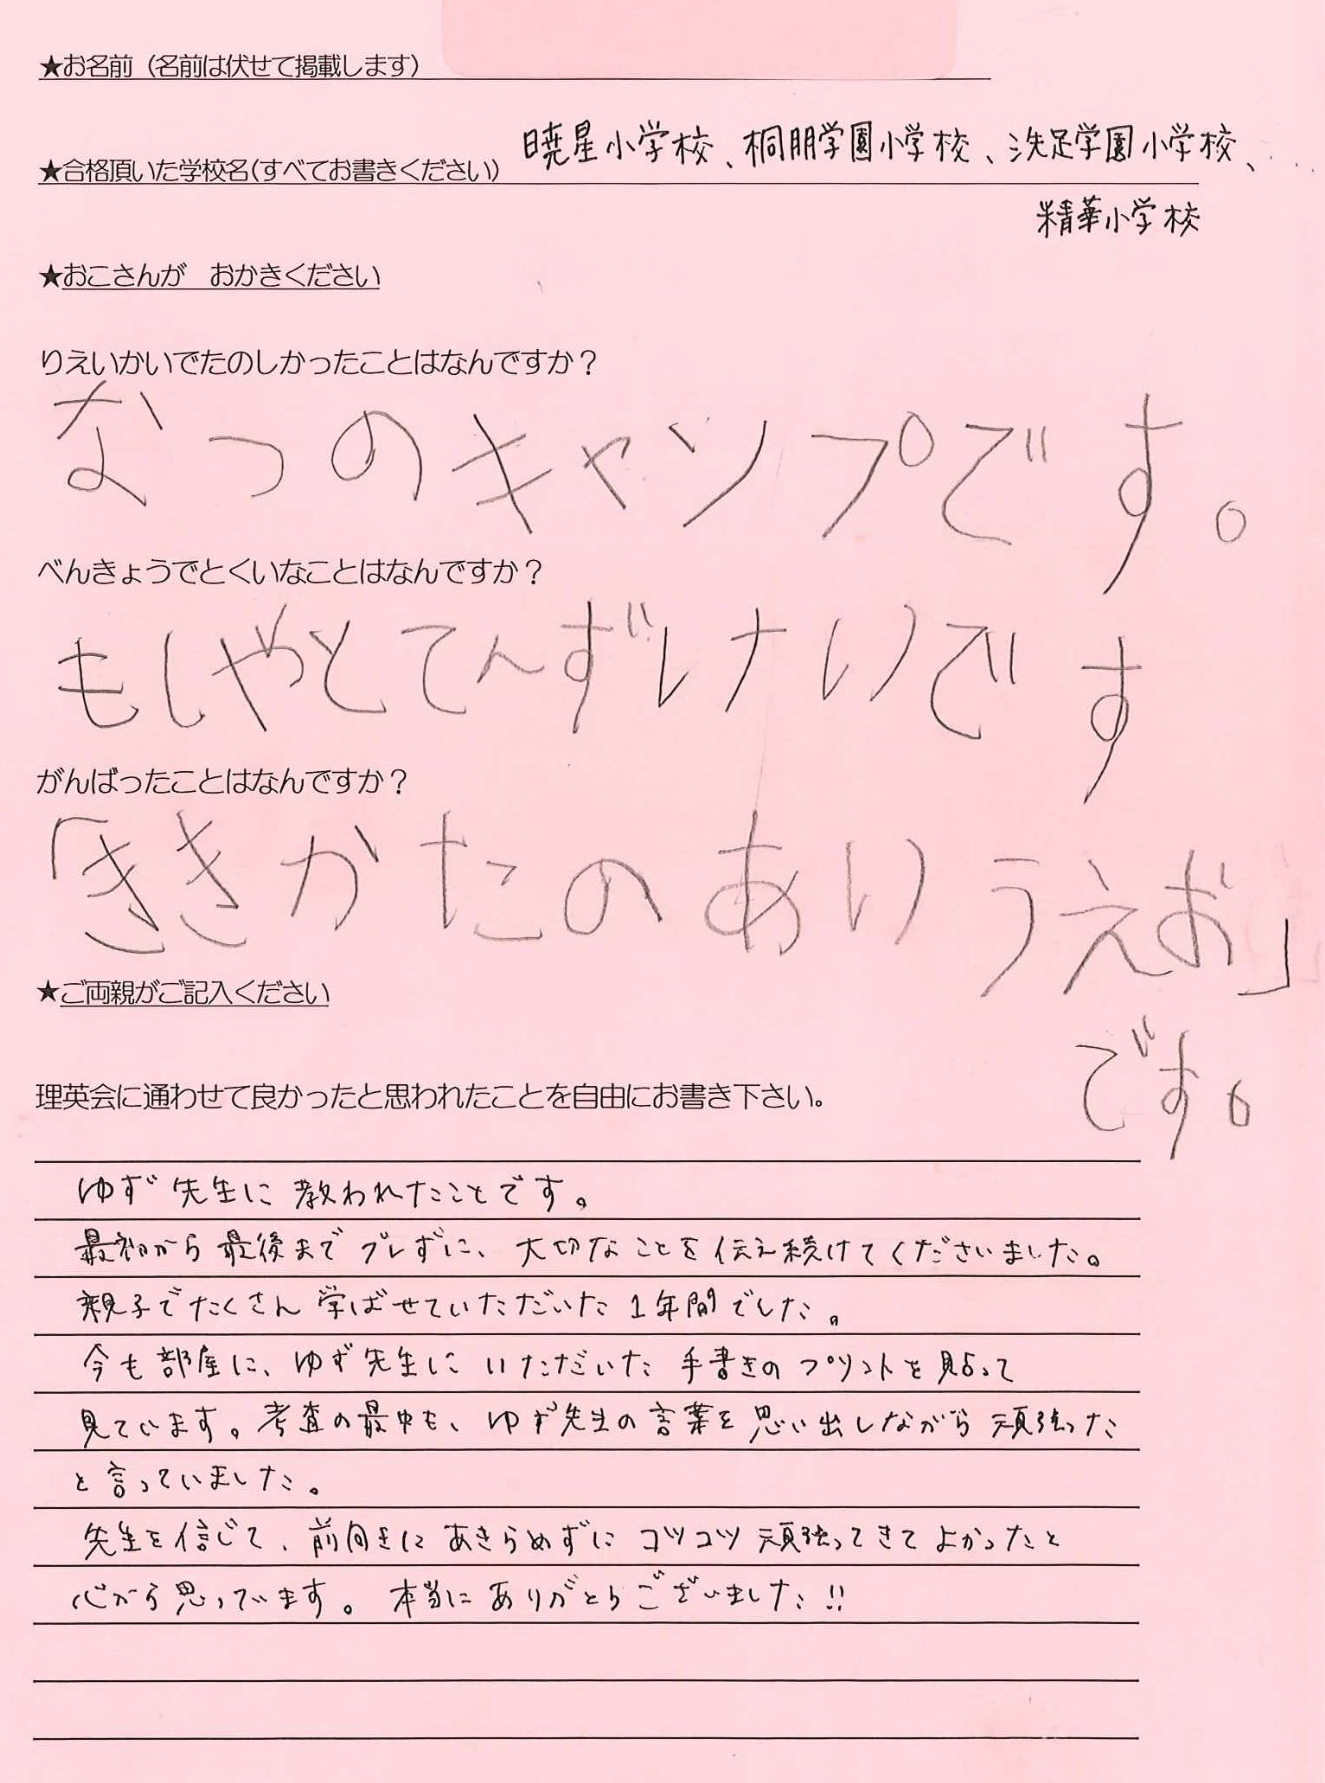 ★お名前（名前は伏せて掲載します）
★合格頂いた学校名（すべてお書きください） 暁星小学校、桐朋学園小学校、洗足学園小学校、
精華小学校
★おこさんが　おかきください
りえいかいでたのしかったことはなんですか？
なつのキャンプです。
べんきょうでとくいなことはなんですか？
もしやとてんずしけいです
がんばったことはなんですか？
「ききかたのあいうえお」
です。
★ご両親がご記入ください
理英会に通わせて良かったと思われたことを自由にお書き下さい。
ゆず先生に教われたことです。
最初から最後までブレずに、大切なことを伝え続けてくださいました。
親子でたくさん学ばせていただいた1年間でした。
今も部屋に、ゆず先生にいただいた手書きのプリントを貼って
見ています。考査の最中も、ゆず先生の言葉を思い出しながら頑張った
と言っていました。
先生を信じて、前向きにあきらめずにコツコツ頑張ってきてよかったと
心から思っています。本当にありがとうございました!!